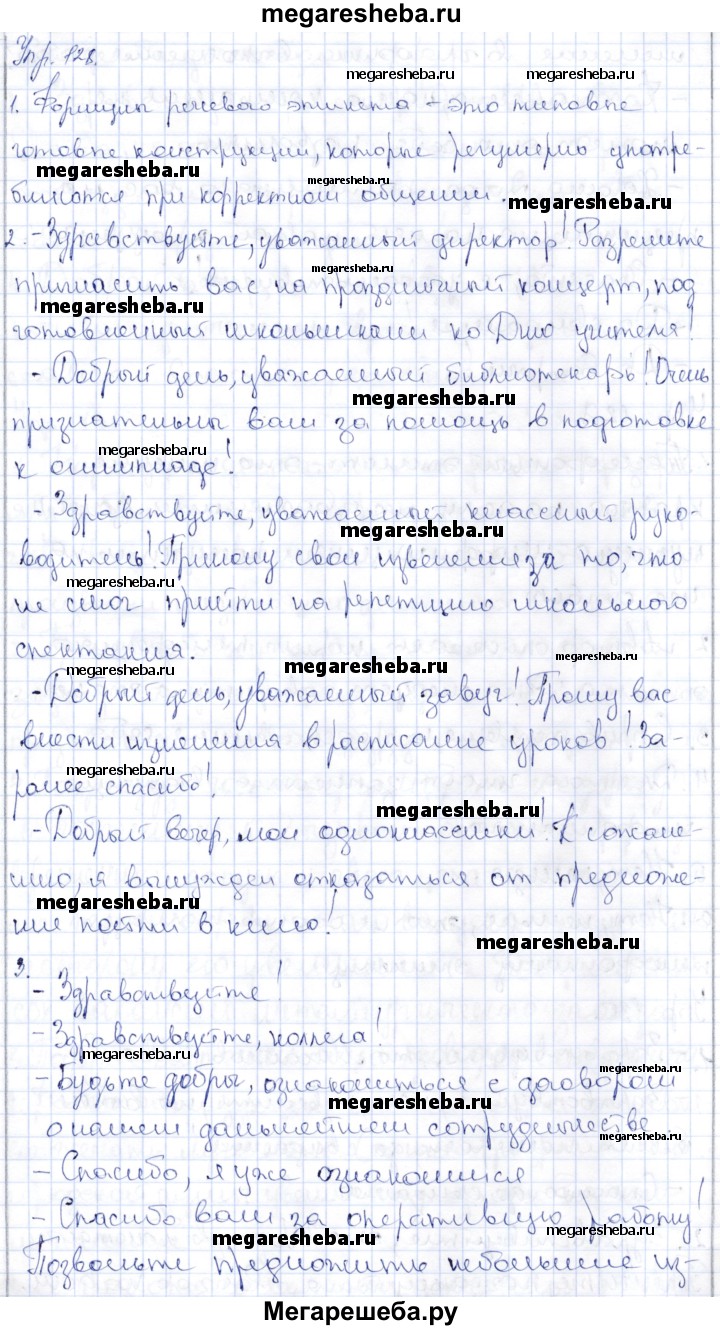 megaresheba.ru
Упр. 128.
megaresheba.ru
megaresheba.ru
1. Формулы речевого этикета – это типовые
megaresheba.ru
готовые конструкции, которые регулярно употре-
megaresheba.ru
megaresheba.ru
бляются при корректном общении.
megaresheba.ru
2. - Здравствуйте, уважаемый директор! Разрешите
megaresheba.ru
пригласить вас на праздничный концерт, под
megaresheba.ru
готовленный школьниками ко Дню учителя!
- Добрый день, уважаемый библиотекарь! Очень
megaresheba.ru
признательны вам за помощь в подготовке
megaresheba.ru
к олимпиаде!
- Здравствуйте, уважаемый классный руко-
megaresheba.ru
водитель! Приношу свои извенения за то, что
megaresheba.ru
не смог прийти на репетицию школьного
megaresheba.ru
спектакля.
megaresheba.ru
megaresheba.ru
megaresheba.ru
- Добрый день, уважаемый завуч! Прошу вас
внести изменения в расписание уроков! За-
megaresheba.ru
megaresheba.ru
ранее спасибо!
megaresheba.ru
- Добрый вечер, мои одноклассники! К сожале-
нию, я вынужден отказаться от предложе-
megaresheba.ru
ния пойти в кино!
megaresheba.ru
3.
- Здравствуйте!
- Здравствуйте, коллега!
megaresheba.ru
- Будьте добры, ознакомиться с договором
megaresheba.ru
о нашем дальнейшем сотрудничестве
megaresheba.ru
- Спасибо, я уже ознакомился
- Спасибо вам за оперативную работу!
megaresheba.ru
megaresheba.ru
Позвольте предложить небольшие из-
Мегарешеба.ру